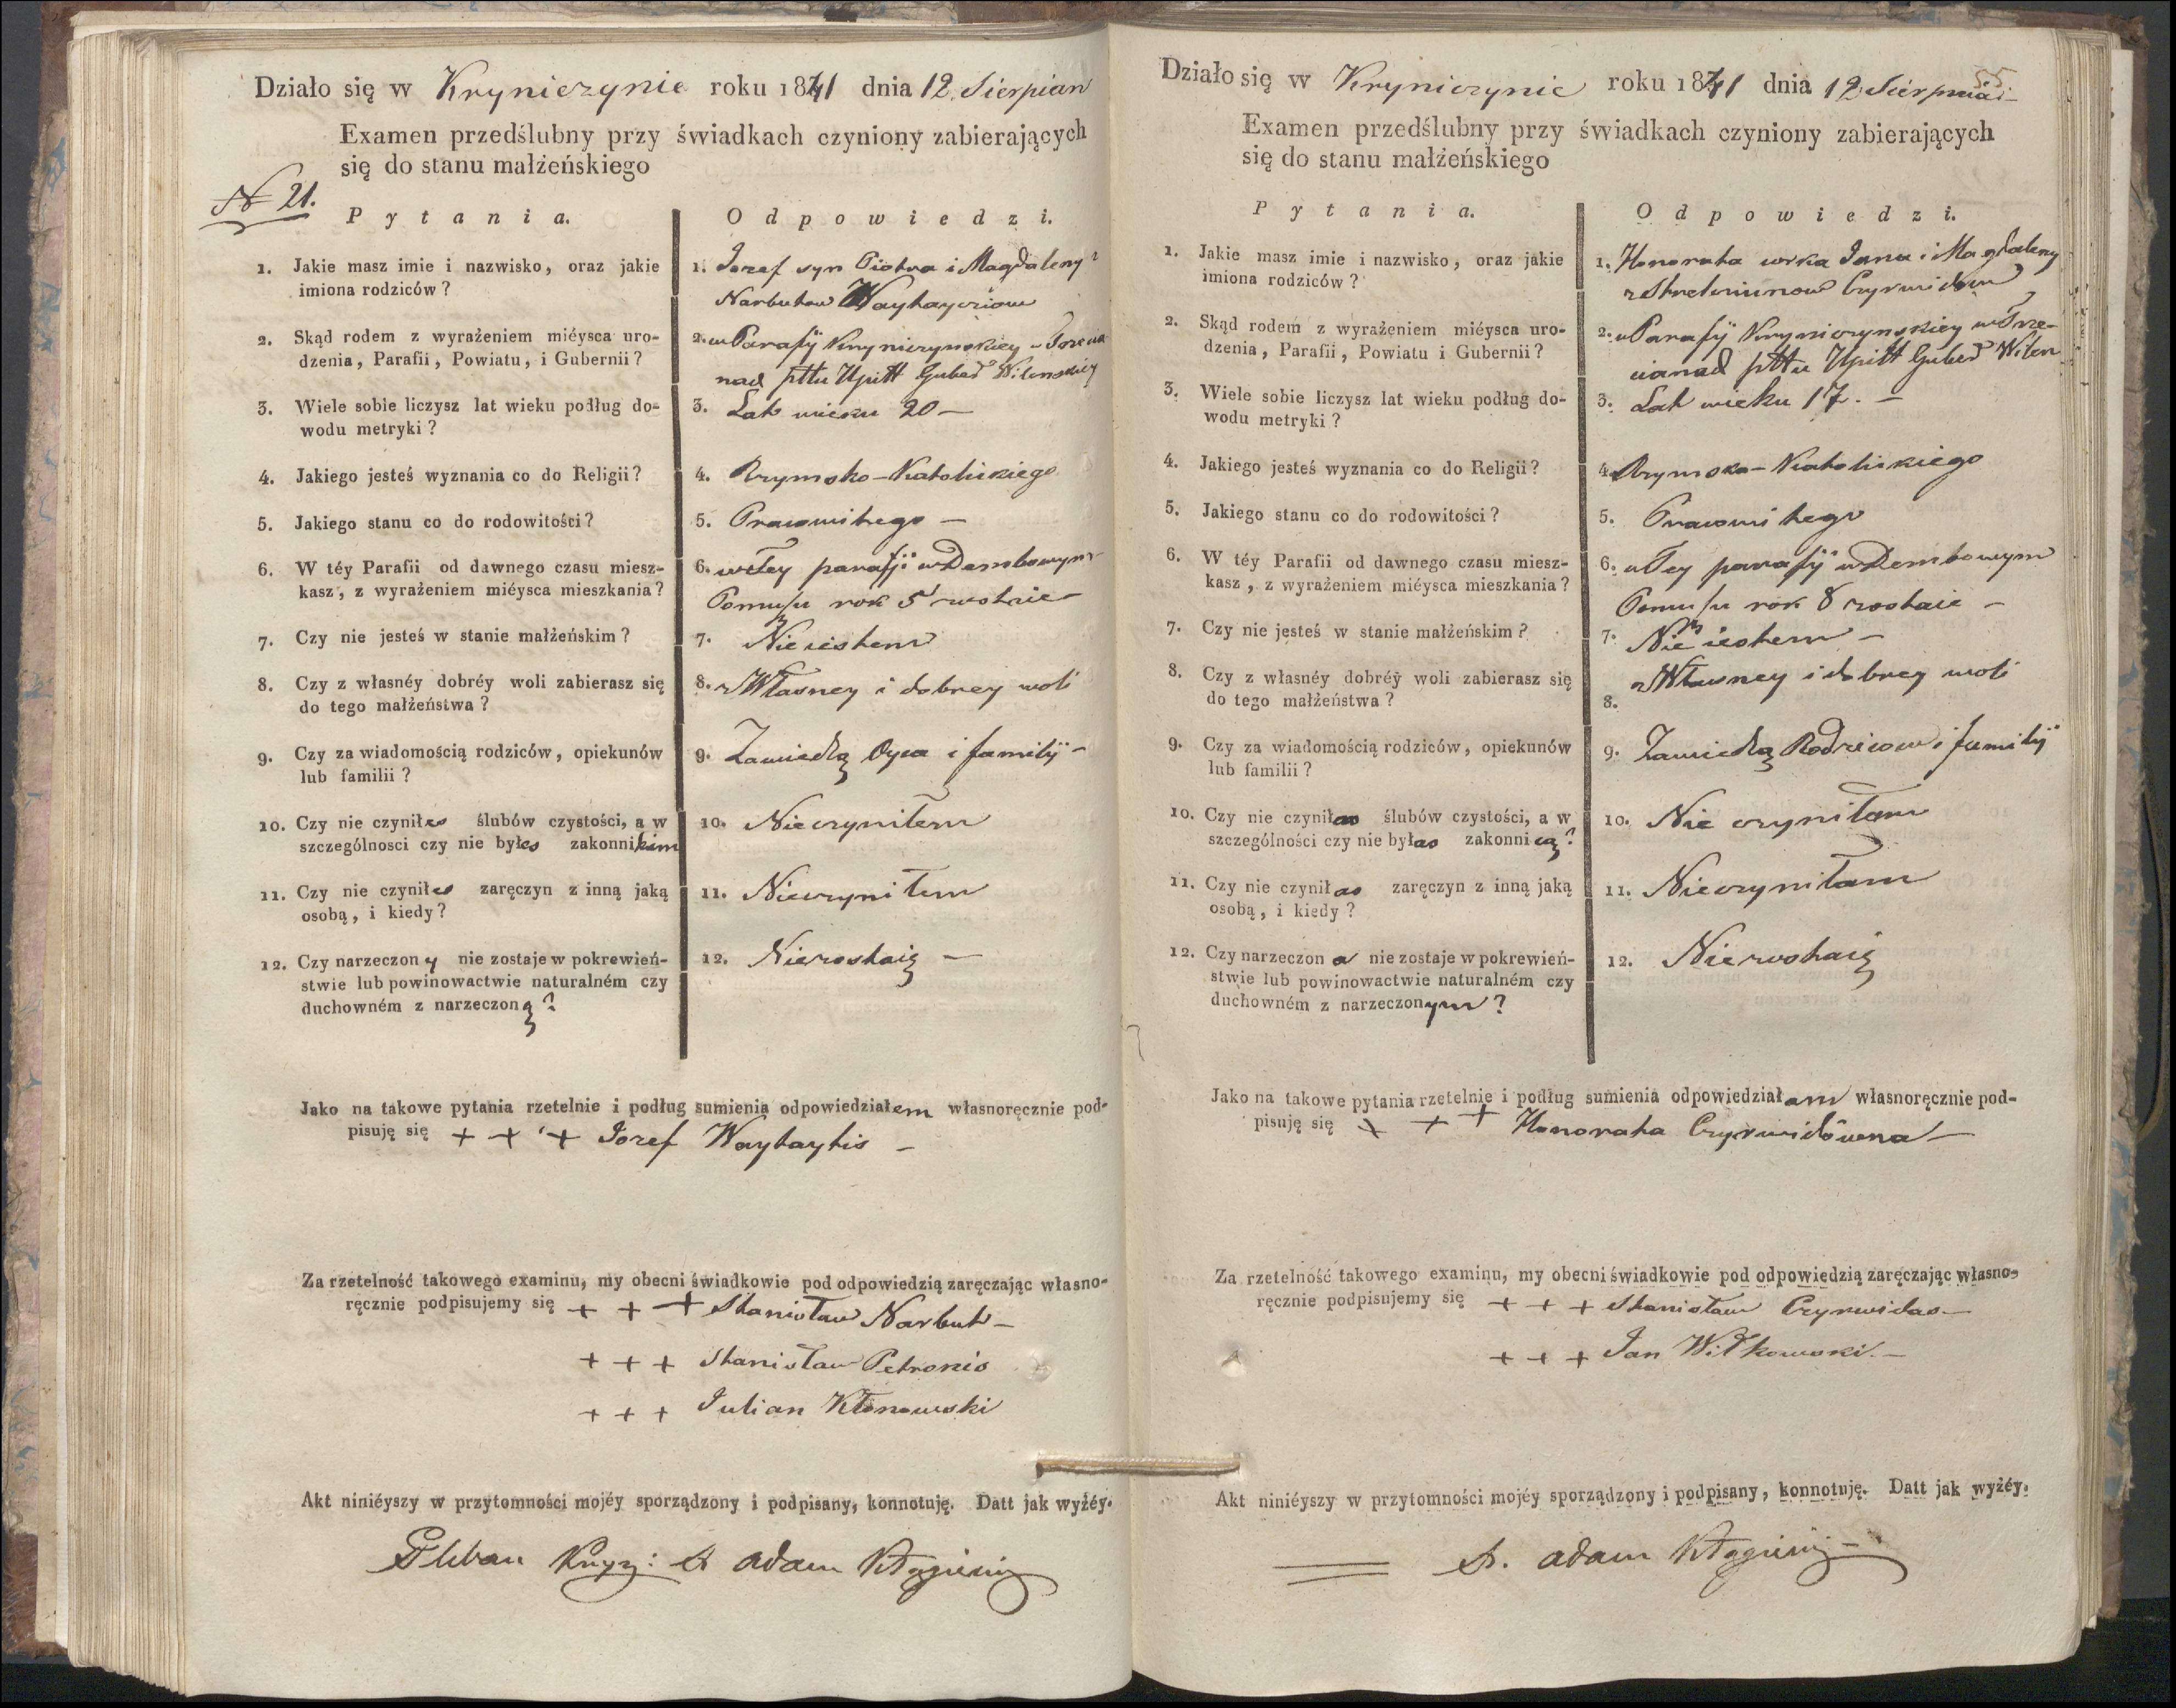 Działo się w Kryniczynie roku 1841 dnia 12. Sierpian
Examen przedślubny przy świadkach czyniony zabierających
się do stanu małżeńskiego
N 21.
Pytania. Odpowiedzi.
1. Jakie masz imie i nazwisko, oraz jakie
imiona rodziców?
1. Jozef syn Piotra i Magdaleny z
Narbutow Waytayciow
2. Skąd rodem z wyrażeniem miéysca uro-
dzenia, Parafii, Powiatu, i Gubernii?
2. w Parafij Kryniczynskiey w
nad pttu Upitt Guber Wilenskiey
3. Wiele sobie liczysz lat wieku podług do-
wodu metryki?
3. Lat wieku 20 —
4. Jakiego jesteś wyznania co do Religii?
4. Rzymsko-Katolickiego
5. Jakiego stanu co do rodowitości?
5. Pracowitego —
6. W téy Parafii od dawnego czasu miesz-
kasz, z wyrażeniem miéysca mieszkania?
6. w tey parafji w Dembowym
Pomuszu rok 5 zostaie —
7. Czy nie jesteś w stanie małżeńskim?
7. Nie iestem
8. Czy z własnéy dobréy woli zabierasz się
do tego małżeństwa?
8. z Własney i dobrey woli
9. Czy za wiadomością rodziców, opiekunów
lub familii?
9. Zawiedzą Oyca i familij —
10. Czy nie czyniłes ślubów czystości, a w
szczególnosci czy nie byłes zakonnikim
10. Nieczyniłem
11. Czy nie czyniłes zaręczyn z inną jaką
osobą, i kiedy?
11. Nieczyniłem
12. Czy narzeczony nie zostaje w pokrewień-
stwie lub powinowactwie naturalném czy
duchowném z narzeczoną?
12. Niezostaię —
Jako na takowe pytania rzetelnie i podług sumienia odpowiedziałem własnoręcznie pod-
pisuję się + + + Jozef Waytaytis —
Za rzetelność takowego examinu, my obecni świadkowie pod odpowiedzią zaręczając własno-
ręcznie podpisujemy się + + + Stanisław Narbut —
+ + + Stanisław Petronis
+ + + Julian Kłonowski
Akt niniéyszy w przytomności mojéy sporządzony i podpisany, konnotuję. Datt jak wyżéy.
Pleban Kryn: X Adam
55
Działo się w Kryniczynie roku 1841 dnia 12 Sierpnia
Examen przedślubny przy świadkach czyniony zabierających
się do stanu małżeńskiego
Pytania. Odpowiedzi.
1. Jakie masz imie i nazwisko, oraz jakie
imiona rodziców?
1. Honorata corka Jana i Magdaleny
z Czyrwidow
2. Skąd rodem z wyrażeniem miéysca uro-
dzenia, Parafii, Powiatu i Gubernii?
2. w Parafij Kryniczynskiey w
pttu Upitt Guber Wilen
3. Wiele sobie liczysz lat wieku podług do-
wodu metryki?
3. Lat wieku 17. —
4. Jakiego jesteś wyznania co do Religii?
4. Rzymsko-Katolickiego
5. Jakiego stanu co do rodowitości?
5. Pracowitego
6. W téy Parafii od dawnego czasu miesz-
kasz, z wyrażeniem miéysca mieszkania?
6. w tey parafij w Dembowym
Pomuszu rok 8 zostaie —
7. Czy nie jesteś w stanie małżeńskim?
7. Nie iestem —
8. Czy z własnéy dobréy woli zabierasz się
do tego małżeństwa?
8. z Własney i dobrey woli
9. Czy za wiadomością rodziców, opiekunów
lub familii?
9. Zawiedzą Rodziców i familij
10. Czy nie czyniłas ślubów czystości, a w
szczególności czy nie byłas zakonnicą?
10. Nie czyniłam
11. Czy nie czyniłas zaręczyn z inną jaką
osobą, i kiedy?
11. Nieczyniłam
12. Czy narzeczona nie zostaje w pokrewień-
stwie lub powinowactwie naturalném czy
duchowném z narzeczonym?
12. Niezostaię
Jako na takowe pytania rzetelnie i podług sumienia odpowiedziałam własnoręcznie pod-
pisuję się + + + Honorata Czyrwidówna —
Za rzetelność takowego examinu, my obecni świadkowie pod odpowiedzią zaręczając własno-
ręcznie podpisujemy się + + + Stanisław Czyrwidas —
+ + + Jan Witkowski. —
Akt niniéyszy w przytomności mojéy sporządzony i podpisany, konnotuję. Datt jak wyżéy.
X. Adam